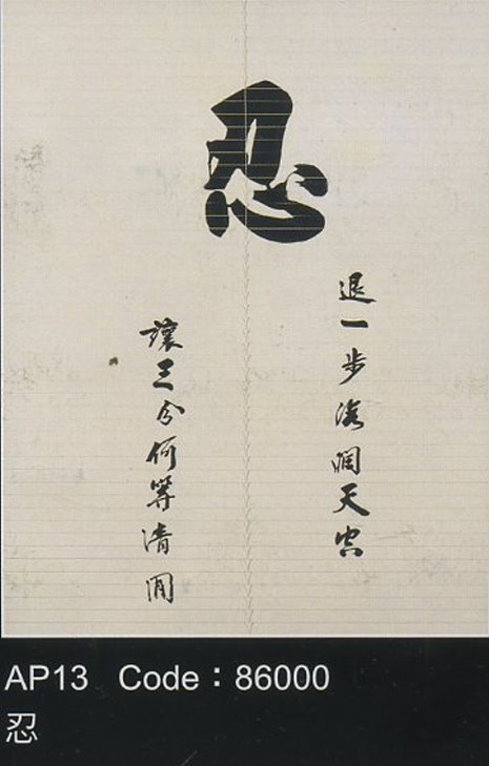 忍
退一步海闊天空
讓三分何等清閒
AP13 Code：86000
忍